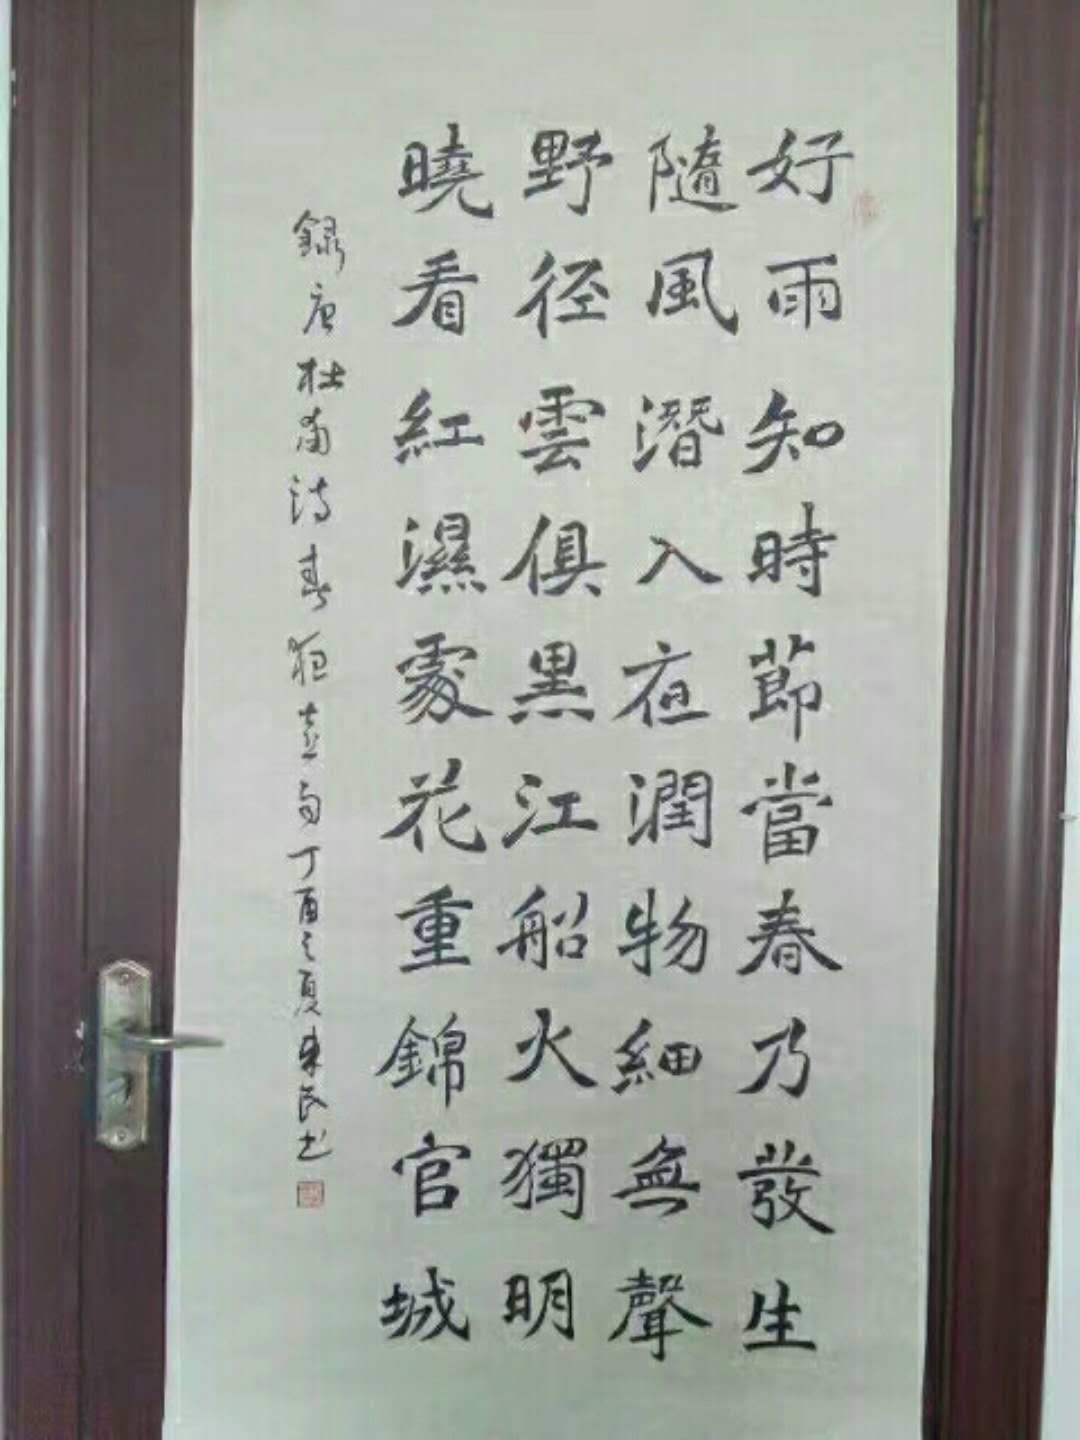 好雨知時節當春乃發生
隨風潛入夜潤物細無聲
野径雲俱黑江船火獨明
曉看紅濕處花重錦官城
録唐杜甫詩春夜喜雨丁酉之夏東民书